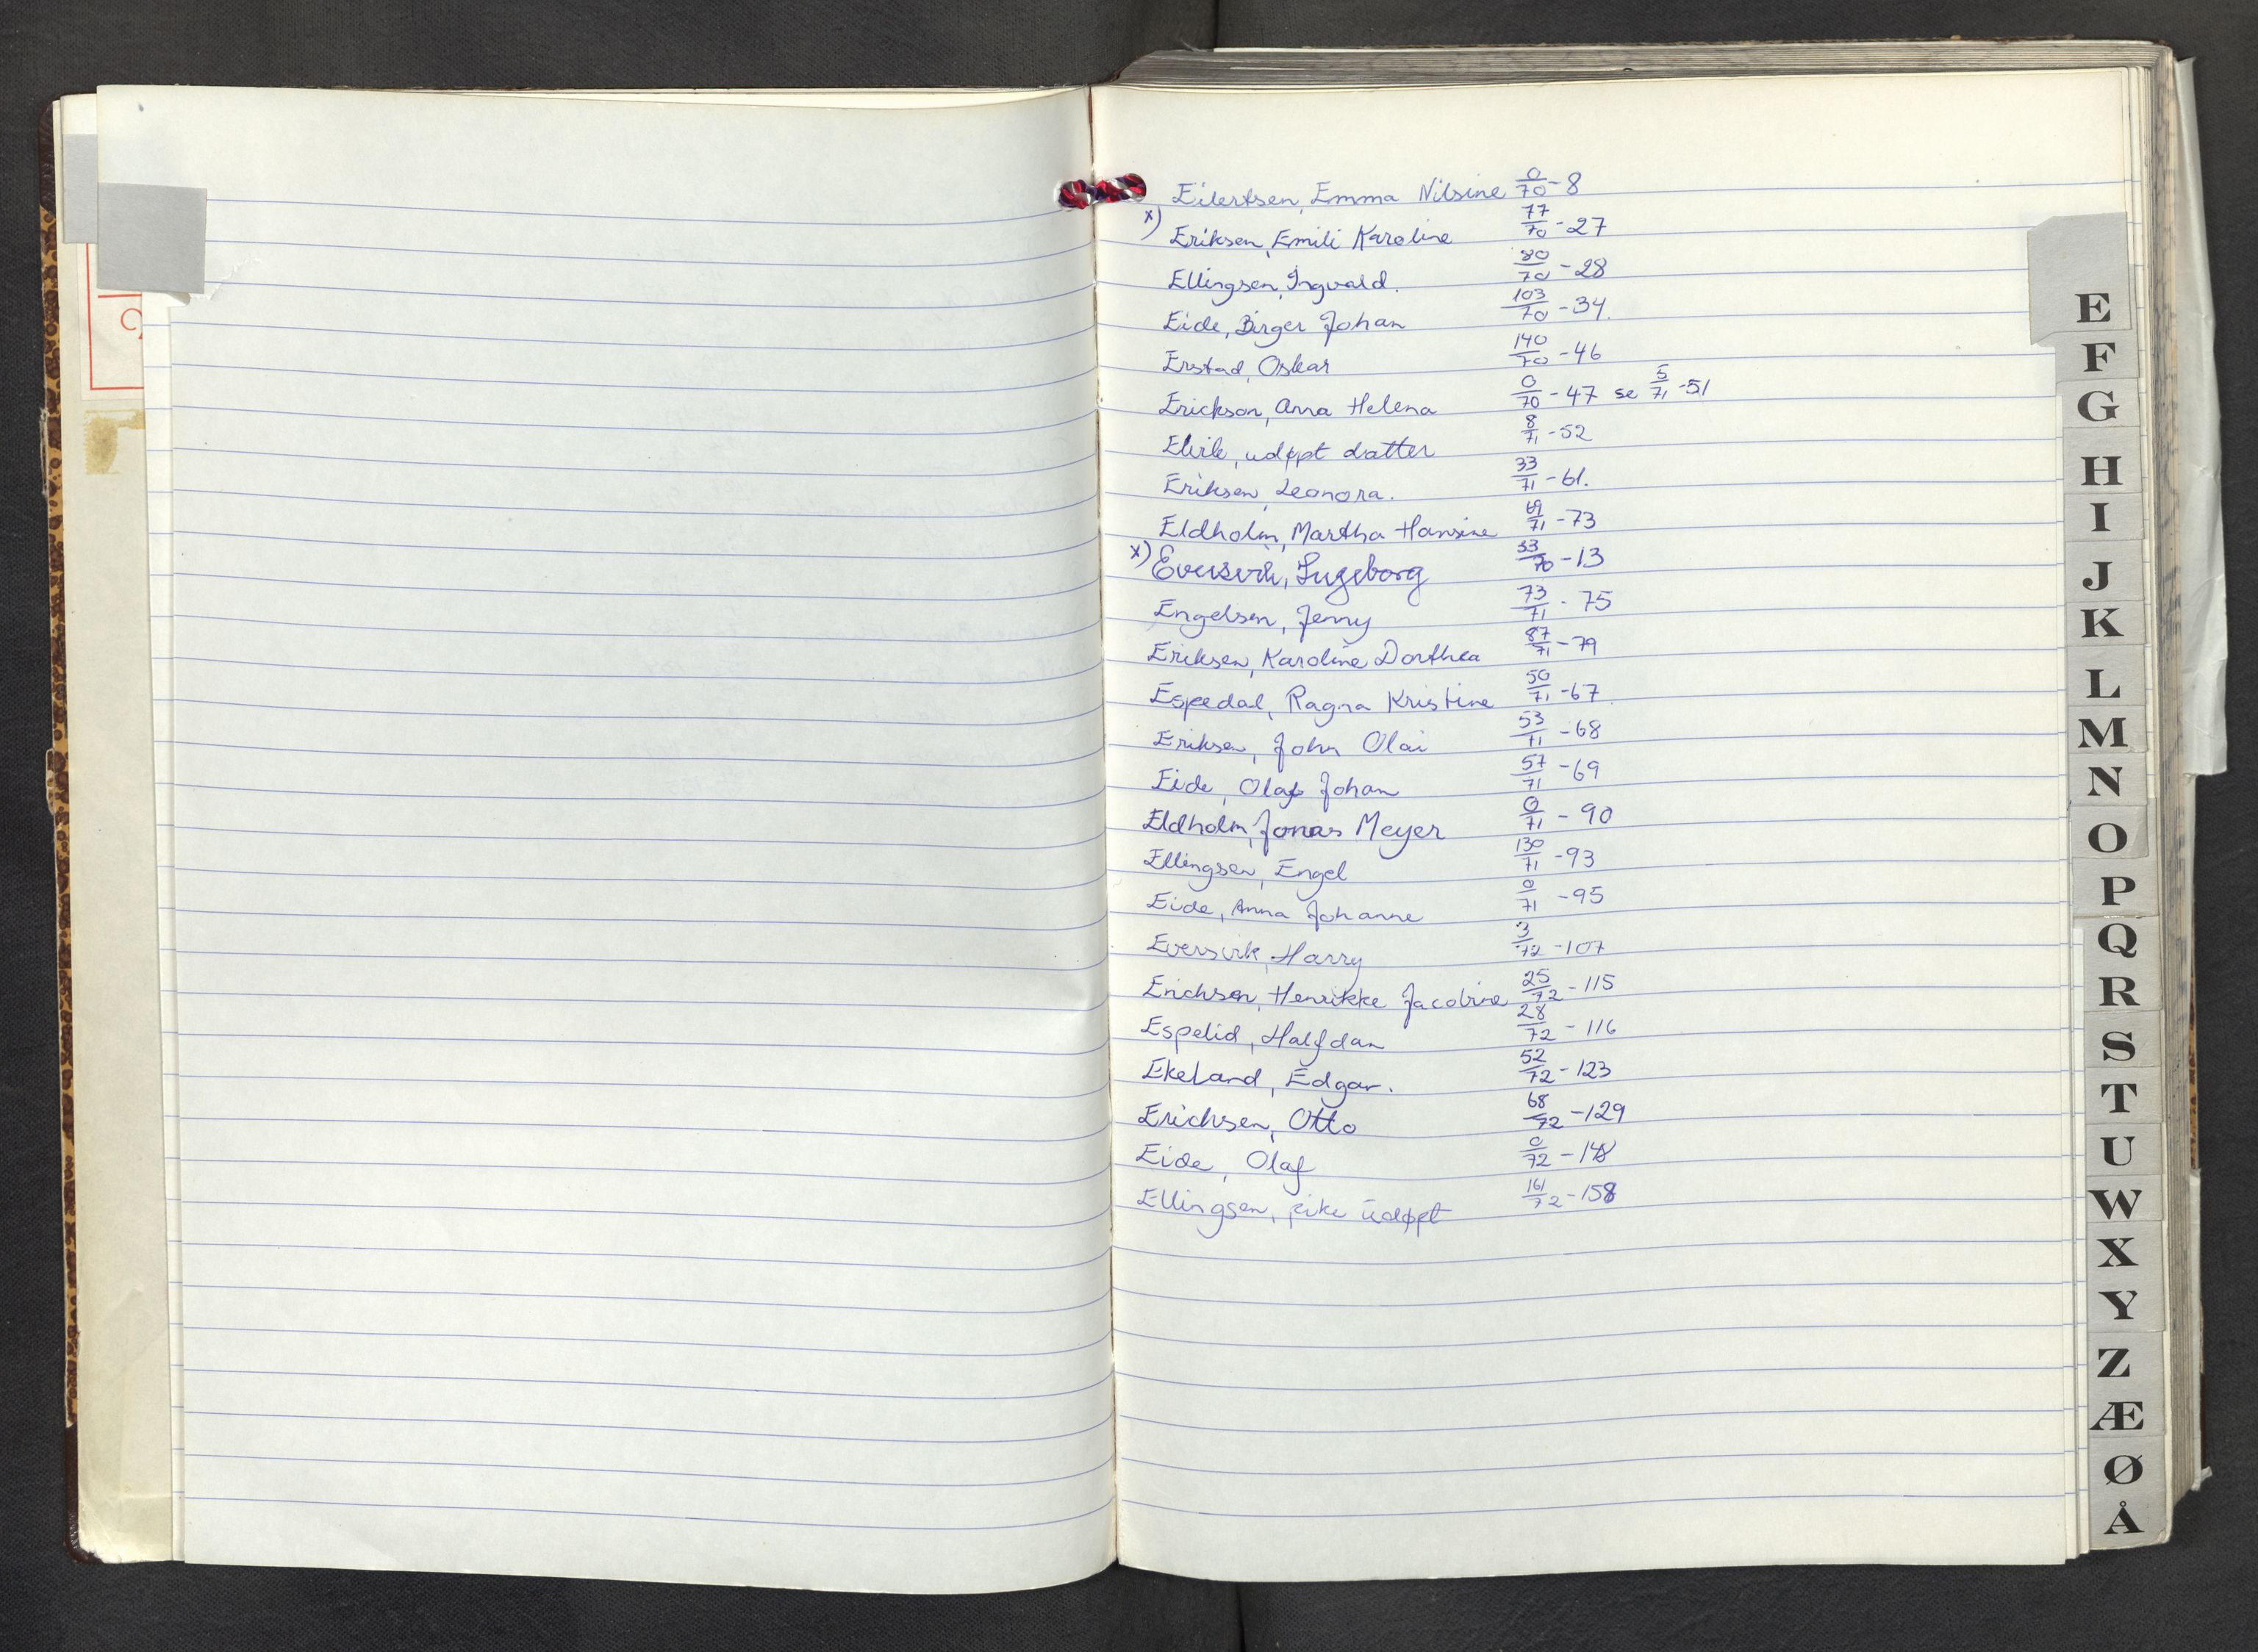 Eilertsen, Emma Nilsine 0/70 - 8
x) Eriksen, Emili Karoline 77/70 - 27
Ellingsen, Ingvald. 80/70 - 28
Eide, Birger Johan 103/70 - 34.
Erstad, Oskar 140/70 - 46
Erickson, Anna Helena 0/70 - 47 se 5/71 - 51
udøpt datter 8/71 - 52
Eriksen, Leonora. 33/71 - 61.
Eldholm, Martha Hansine 69/71 - 73
x) Eversvik, Ingeborg 33/70 - 13
Engelsen, Jenny 73/71 - 75
Eriksen, Karoline Dorthea 87/71 - 79
Espedal, Ragna Kristine 50/71 - 67
Eriksen, John Olai 53/71 - 68
Eide, Olaf Johan 57/71 - 69
Eldholm, Jonas Meyer 0/71 - 90
Ellingsen, Engel 130/71 - 93
Eide, Anna Johanne 0/71 - 95
Eversvik, Harry 3/72 - 107
Erichsen, Henrikke Jacobine 25/72 - 115
Espelid, Halfdan 28/72 - 116
Ekeland, Edgar. 52/72 - 123
Erichsen, Otto 68/72 - 129
Eide, Olaf 0/72 - 148
Ellingsen, pike udøpt 161/72 - 158
E
F
G
H
I
J
K
L
M
N
O
P
Q
R
S
T
U
W
X
Y
Z
Æ
Ø
Å